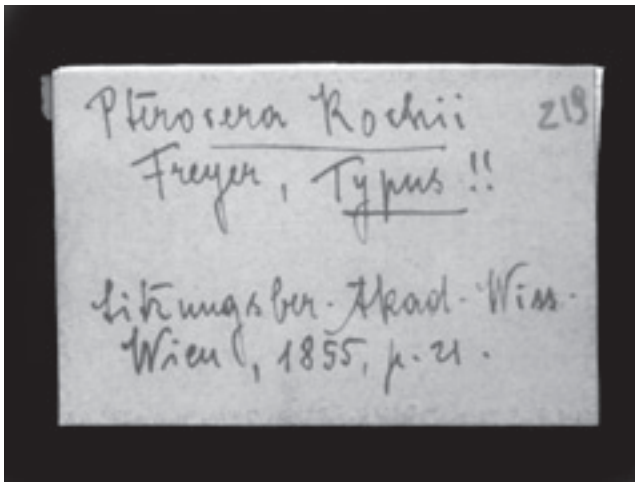 Pterocera Kochii 219
Freyer, Typus!!
Sitzungsber. Akad. Wiss.
Wien, 1855, p. 21.